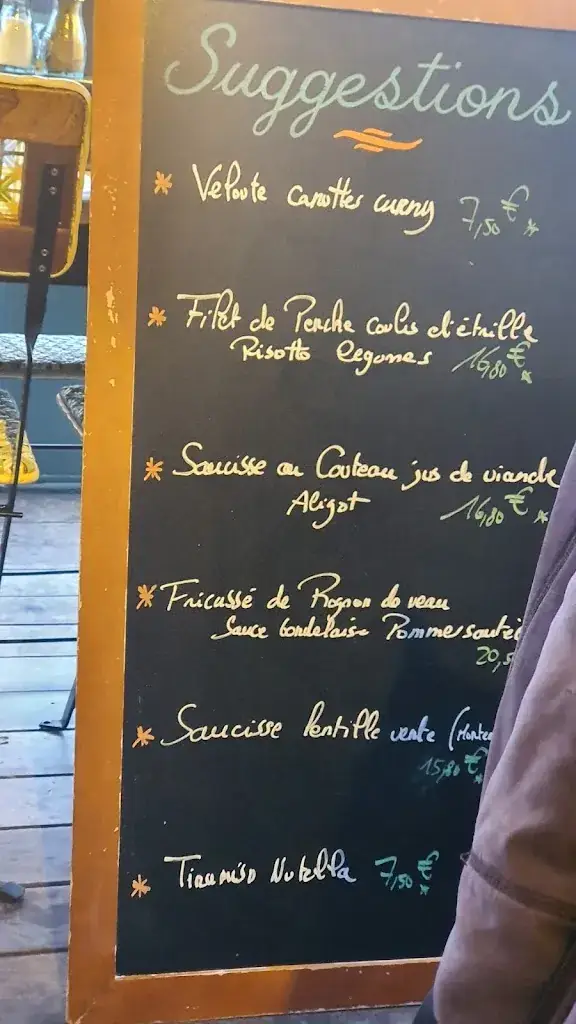 Suggestions
* Veloute carottes curry 7,50 € *
* Filet de Perche coulis d'étrille
Risotto légumes 16,80 € *
* Saucisse au Couteau jus de viande
Aligot 16,80 € *
* Fricassé de Rognon de veau
Sauce bordelaise Pommes
20,5
* Saucisse lentille verte
15,80 € *
* Tiramiso Nutella 7,50 € *